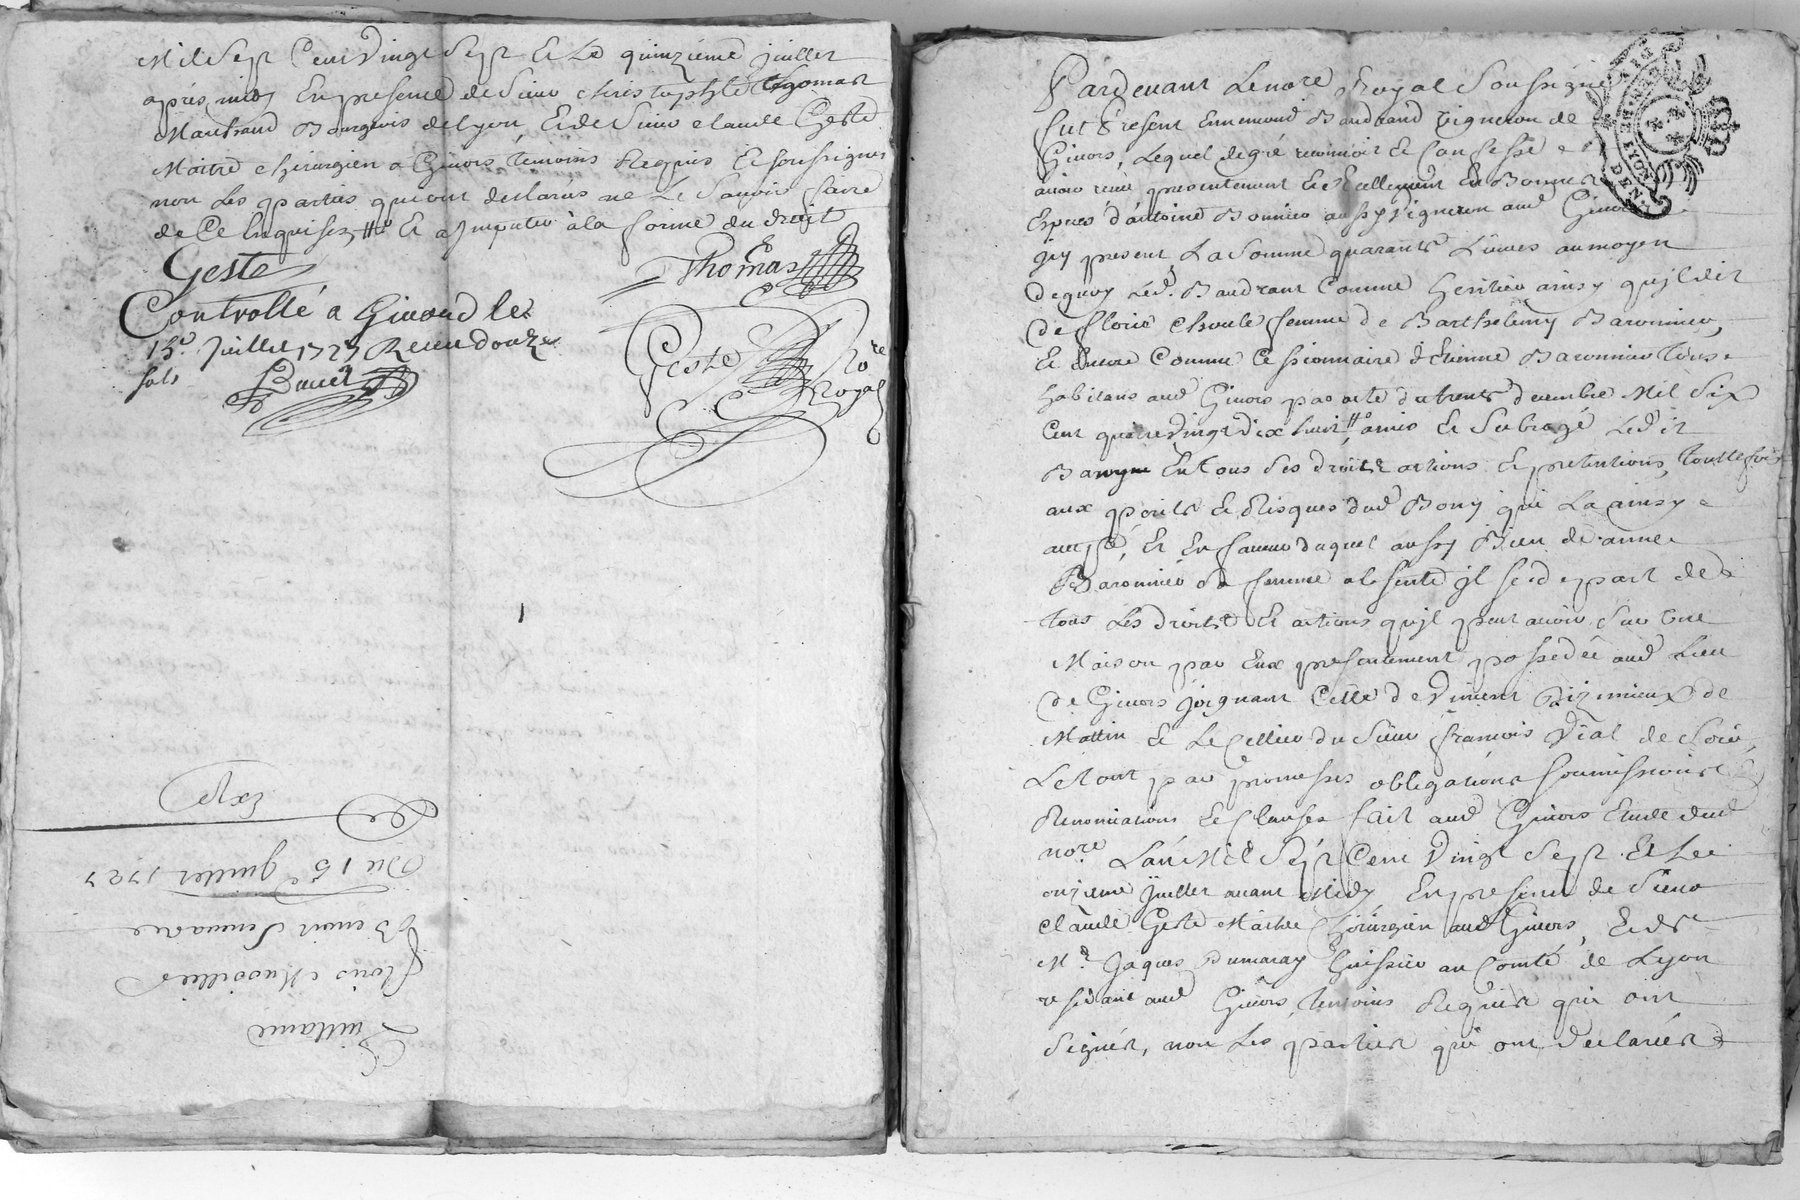 Mil Sept Cent Vingt Sept Et Le quinzieme juillet
apres midy En presence de Sieur christophle Thomas
Marchand Bourgeois de Lyon, Et de Sieur claude Geste
Maitre chirurgien a Givors temoins Requis Et soussignes
non Les parties qui ont declarés ne Le Savoir faire
de Ce Enquises, Et a Imputer à la forme du droit
Geste
Thomas
Controllé a Givord le
15e. Juillet 1727 Receu douze
sols
Geste No.re
Royal
Exp.e
Du 15e Juillet 1727
Benoit
floris
Quittance
Pardevant Le no.re Royal Soussigné
fut Present Ennemond Baudrand vigneron de
Givors, Lequel de gré reconnoit Et Confesse
avoir receu presentement Et Reellement En Bonnes
Especes d'antoine aussy vigneron aud. Givors
icy present La Somme quarante Livres au moyen
dequoy Led. Baudrant Comme heritier ainsy qu'il dit
de floris femme de Barthelemy Baronnier,
Et Encore Comme Cessionnaire d'Etienne Baronnier tous
habitans aud. Givors par acte du trente decembre Mil Six
Cent quatre Vingt dix huit, a mis Et Subrogé Led. it
En tous Ses droits actions Et pretentions, touttefois
aux perils Et Risques dud. Bony qui La ainsy
accepté, Et En faveur duquel aussy Bien de anne
Baronnier sa femme absente il se depart de
tous Les droits Et actions qu'il peut avoir Sur Une
Maison par Eux presentement possedée aud. Lieu
de Givors joignant Celle de Vincent de
Mattin Et Le Cellier du Sieur françois Vial de Soir,
Le tout par promesses obligations Soumissions
Renonciations Et Clauses fait aud. Givors Etude dud.
no.re L'an Mil Sept Cent Vingt Sept Et Le
onzieme juillet avant Midy En presence de Sieur
claude Geste Maitre Chirurgien aud. Givors, Et de
M.e Jaques Dumaray huissier au Comté de Lyon
residant aud. Givors, temoins Requis qui ont
Signés, non Les parties qui ont declarées